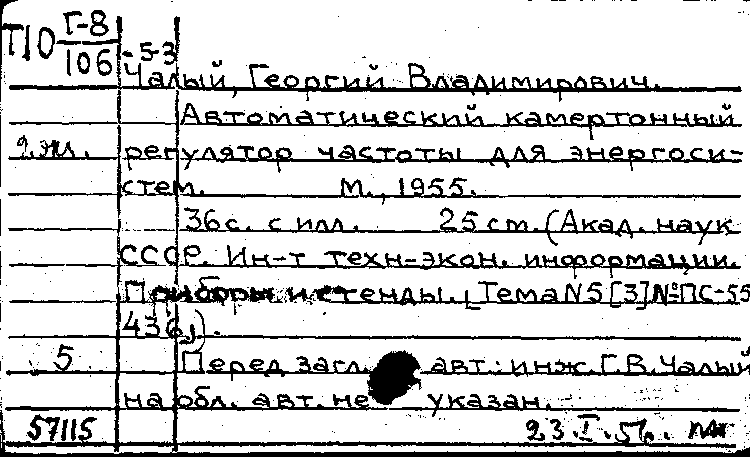 Т10 Г-8/106 -5-3
Чалый, Георгий Владимирович.
Автоматический камертонный
2 экз. регулятор частоты для энергоси-
стем. М., 1955.
36 с. с илл. 25 см. (Акад. наук
СССР. Ин-т техн-экон. информации.
Приборы и стенды. [Тема N5 [3] № ПС-55
436]).
5 Перед загл. авт.: инж. Г.В. Чалый
на обл. авт. не указан.
57115 23.I.56.